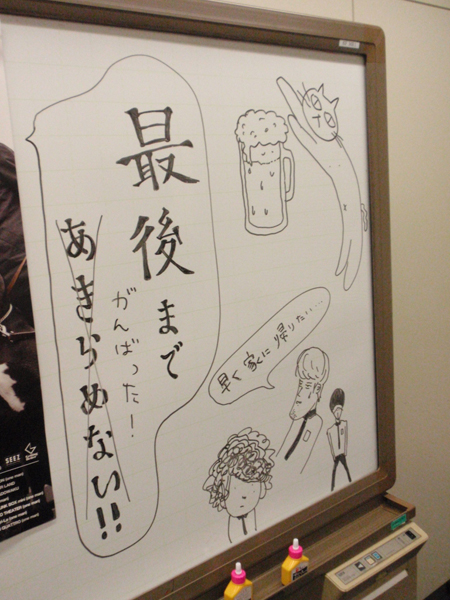 最後まで
がんばった!
あきらめない!!
早く家に帰りたい……
SEEZ